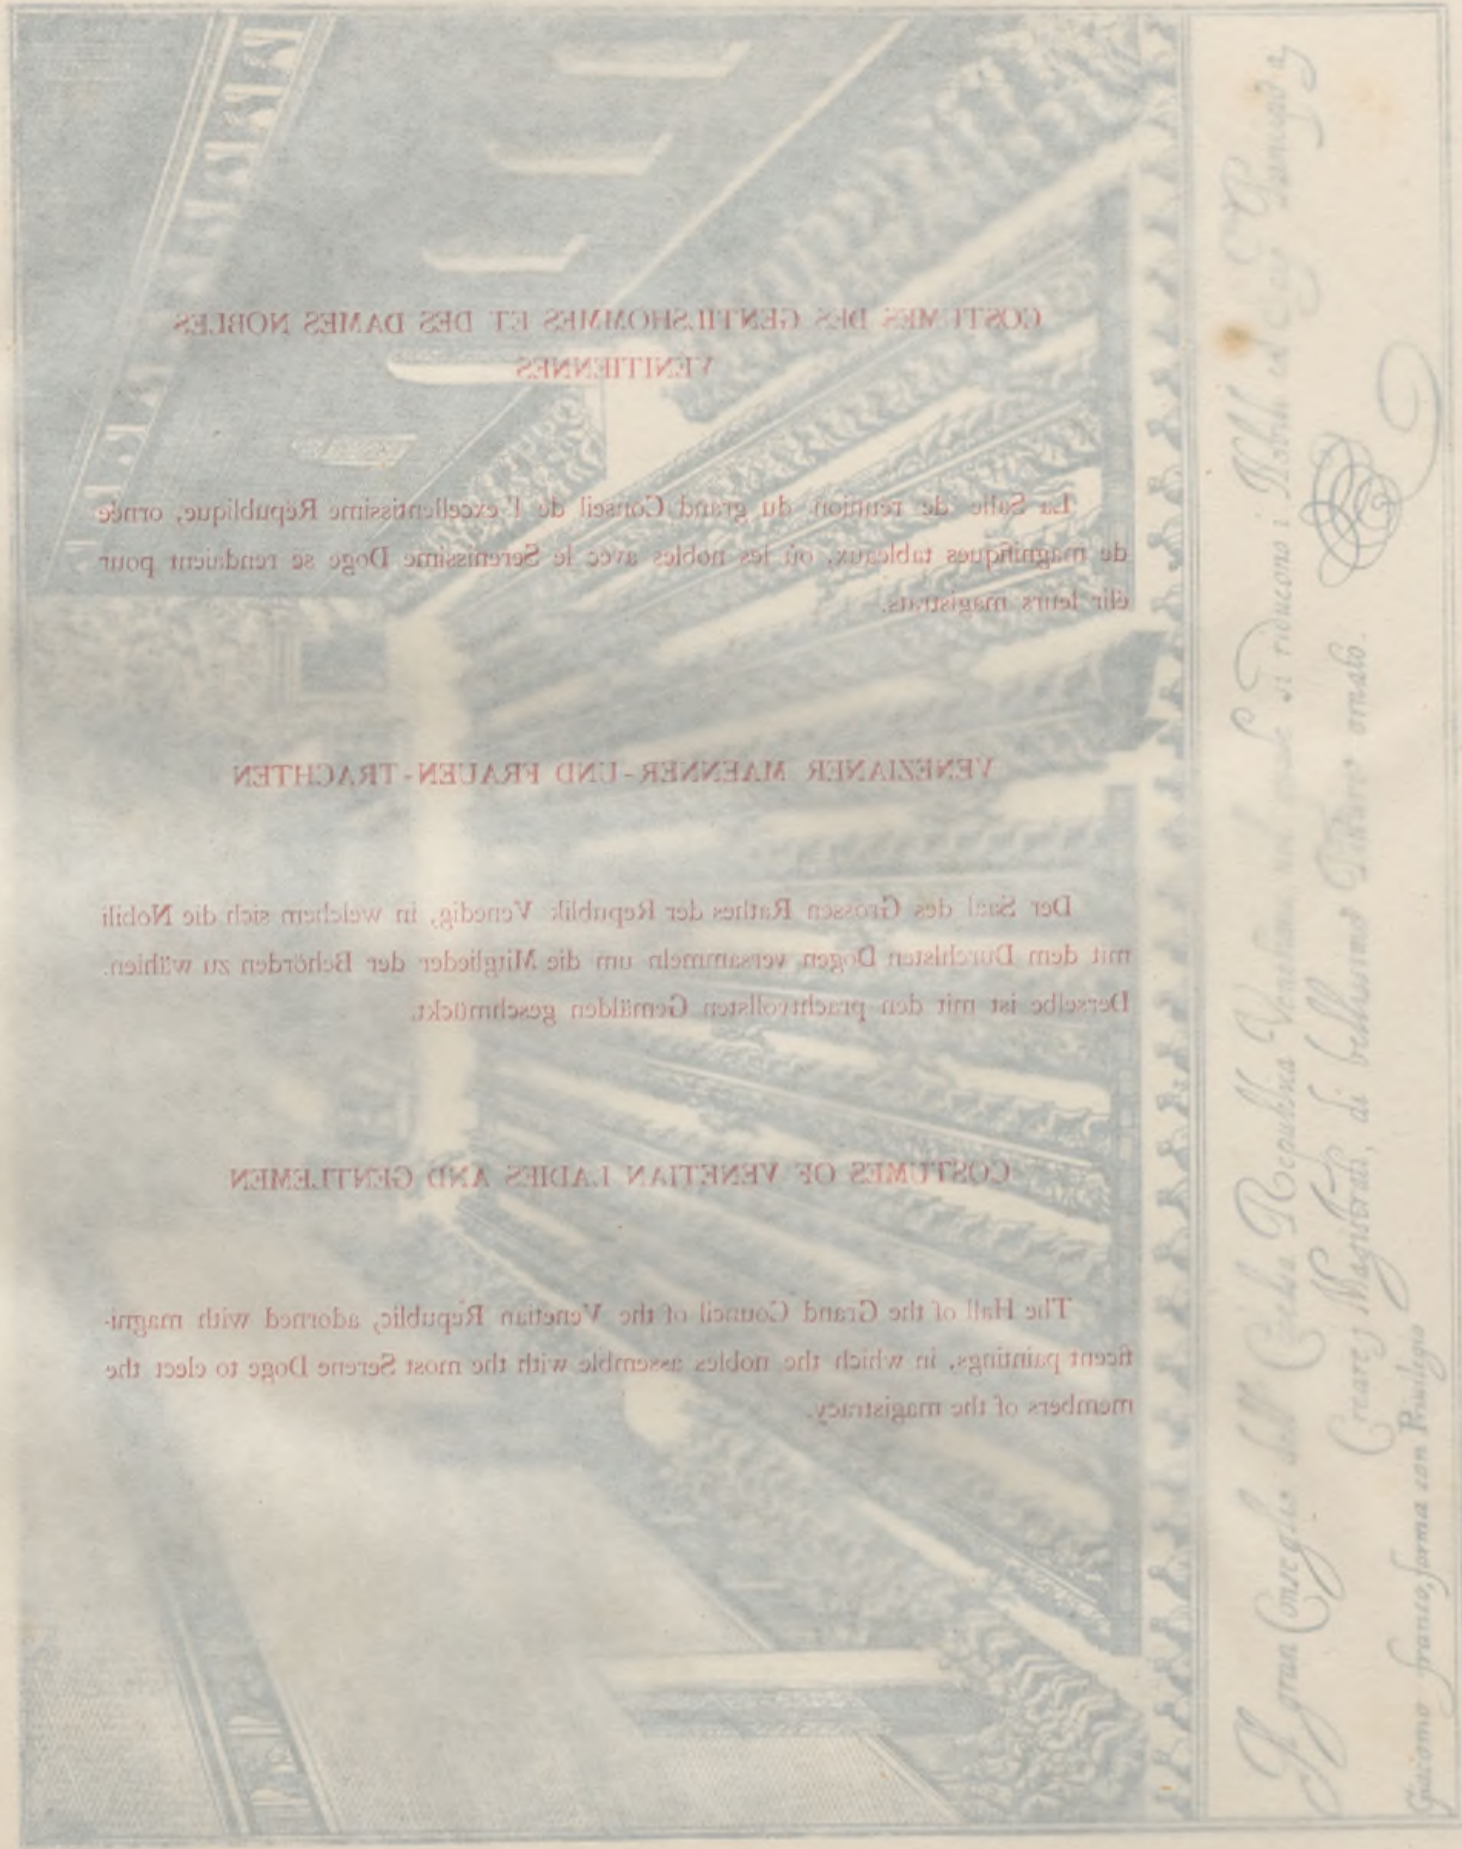 COSTUMES DES GENTILSHOMMES ET DES DAMES NOBLES
VÉNITIENNES
La Salle de réunion du grand Conseil de l'excellentissime République, ornée
de magnifiques tableaux, où les nobles avec le Serenissime Doge se rendaient pour
élir leurs magistrats.
VENEZIANER MAENNER-UND FRAUEN-TRACHTEN
Der Saal des Grossen Rathes der Republik Venedig, in welchem sich die Nobili
mit dem Durchlsten Dogen versammeln um die Mitglieder der Behörden zu wählen.
Derselbe ist mit den prachtvollsten Gemälden geschmückt.
COSTUMES OF VENETIAN LADIES AND GENTLEMEN
The Hall of the Grand Council of the Venetian Republic, adorned with magni-
ficent paintings, in which the nobles assemble with the most Serene Doge to elect the
members of the magistracy.
Il gran Conseglio dell' Republica si riducono i Nobili
Creare j Magistrati, di bellissime Pitture ornato.
Giacomo franco forma con Privilegio